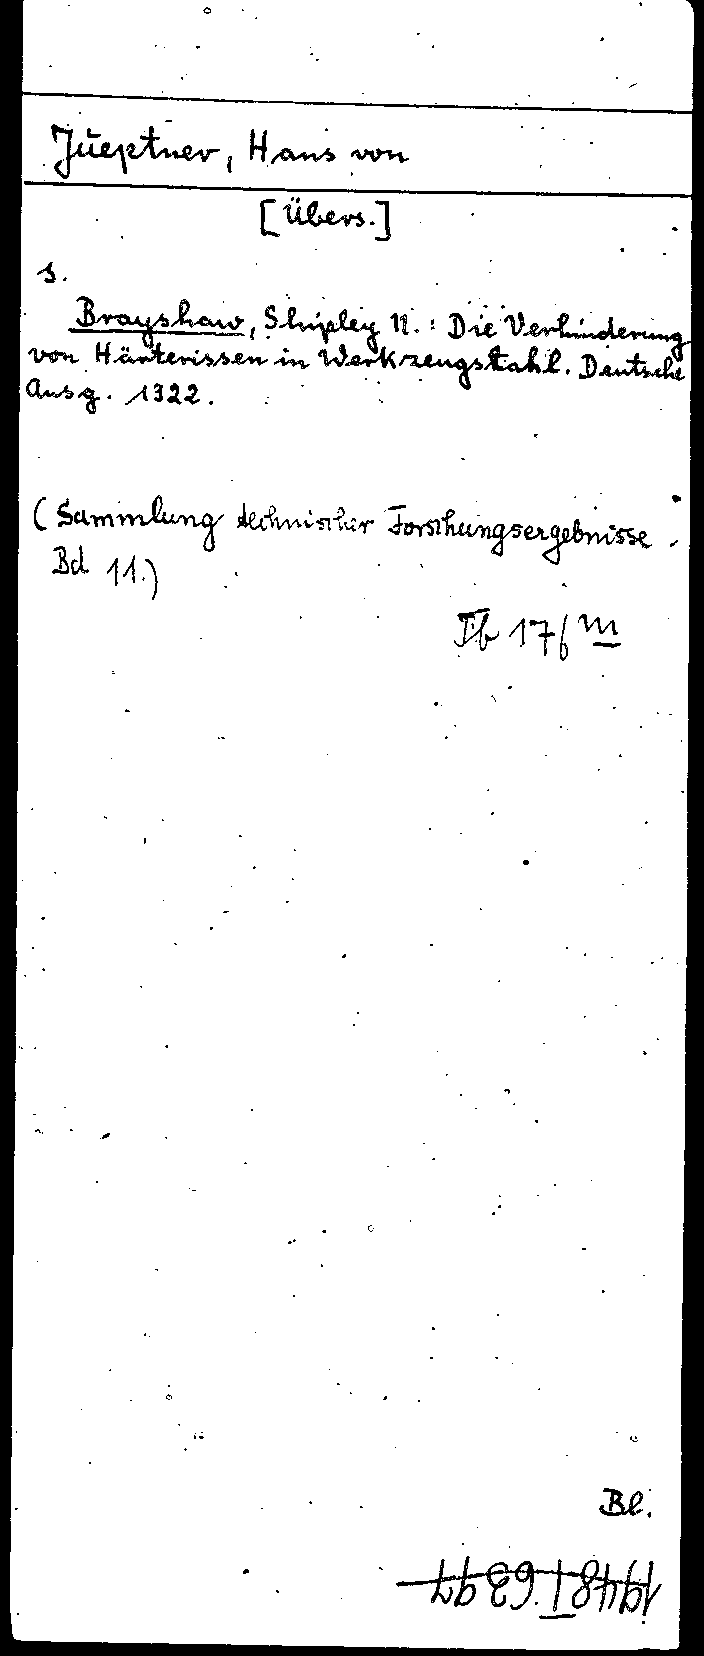 Jueptner, Hans von
[Übers.]
s.
Brayshaw, Shipley N.: Die Verhinderung
von Härterissen in Werkzeugstahl. Deutsche
Ausg. 1922.
(Sammlung technischer Forschungsergebnisse.
Bd 11.)
Bl.